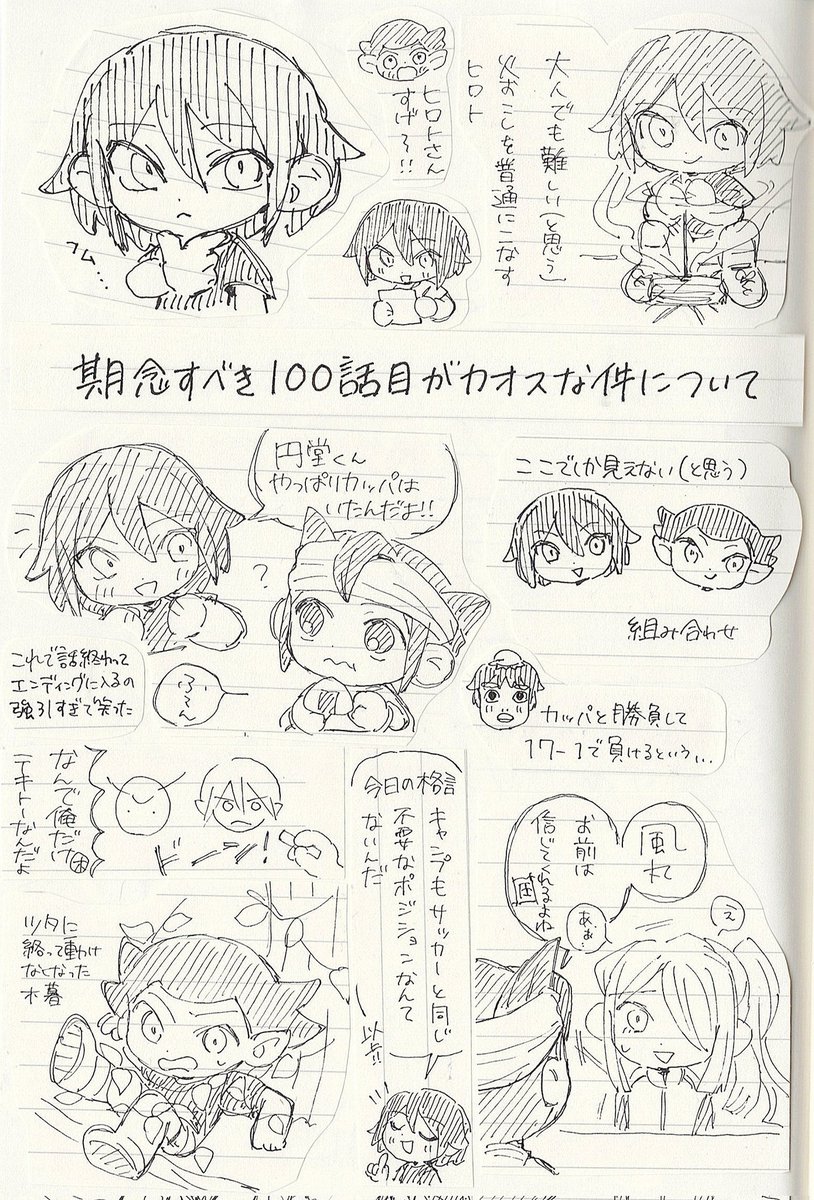 大人でも難しい(と思う)
火おこしを普通にこなす
ヒロト
ヒロトさん
すげ〜!!
フム…
期念すべき100話目がカオスな件について
円堂くん
やっぱりカッパは
いたんだよ!!
?
これで話終わって
エンディングに入るの
強引すぎて笑った
ふーん
ここでしか見えない(と思う)
組み合わせ
カッパと勝負して
17-1で負けるという…
なんで俺だけ困
テキトーなんだよ
ドーン!
今日の格言
キャンプもサッカーと同じ
不要なポジションなんて
ないんだ
以上!!
風丸
お前は
信じてくれるよね
あぁ…
え
ツタに
絡って動け
なくなった
木暮